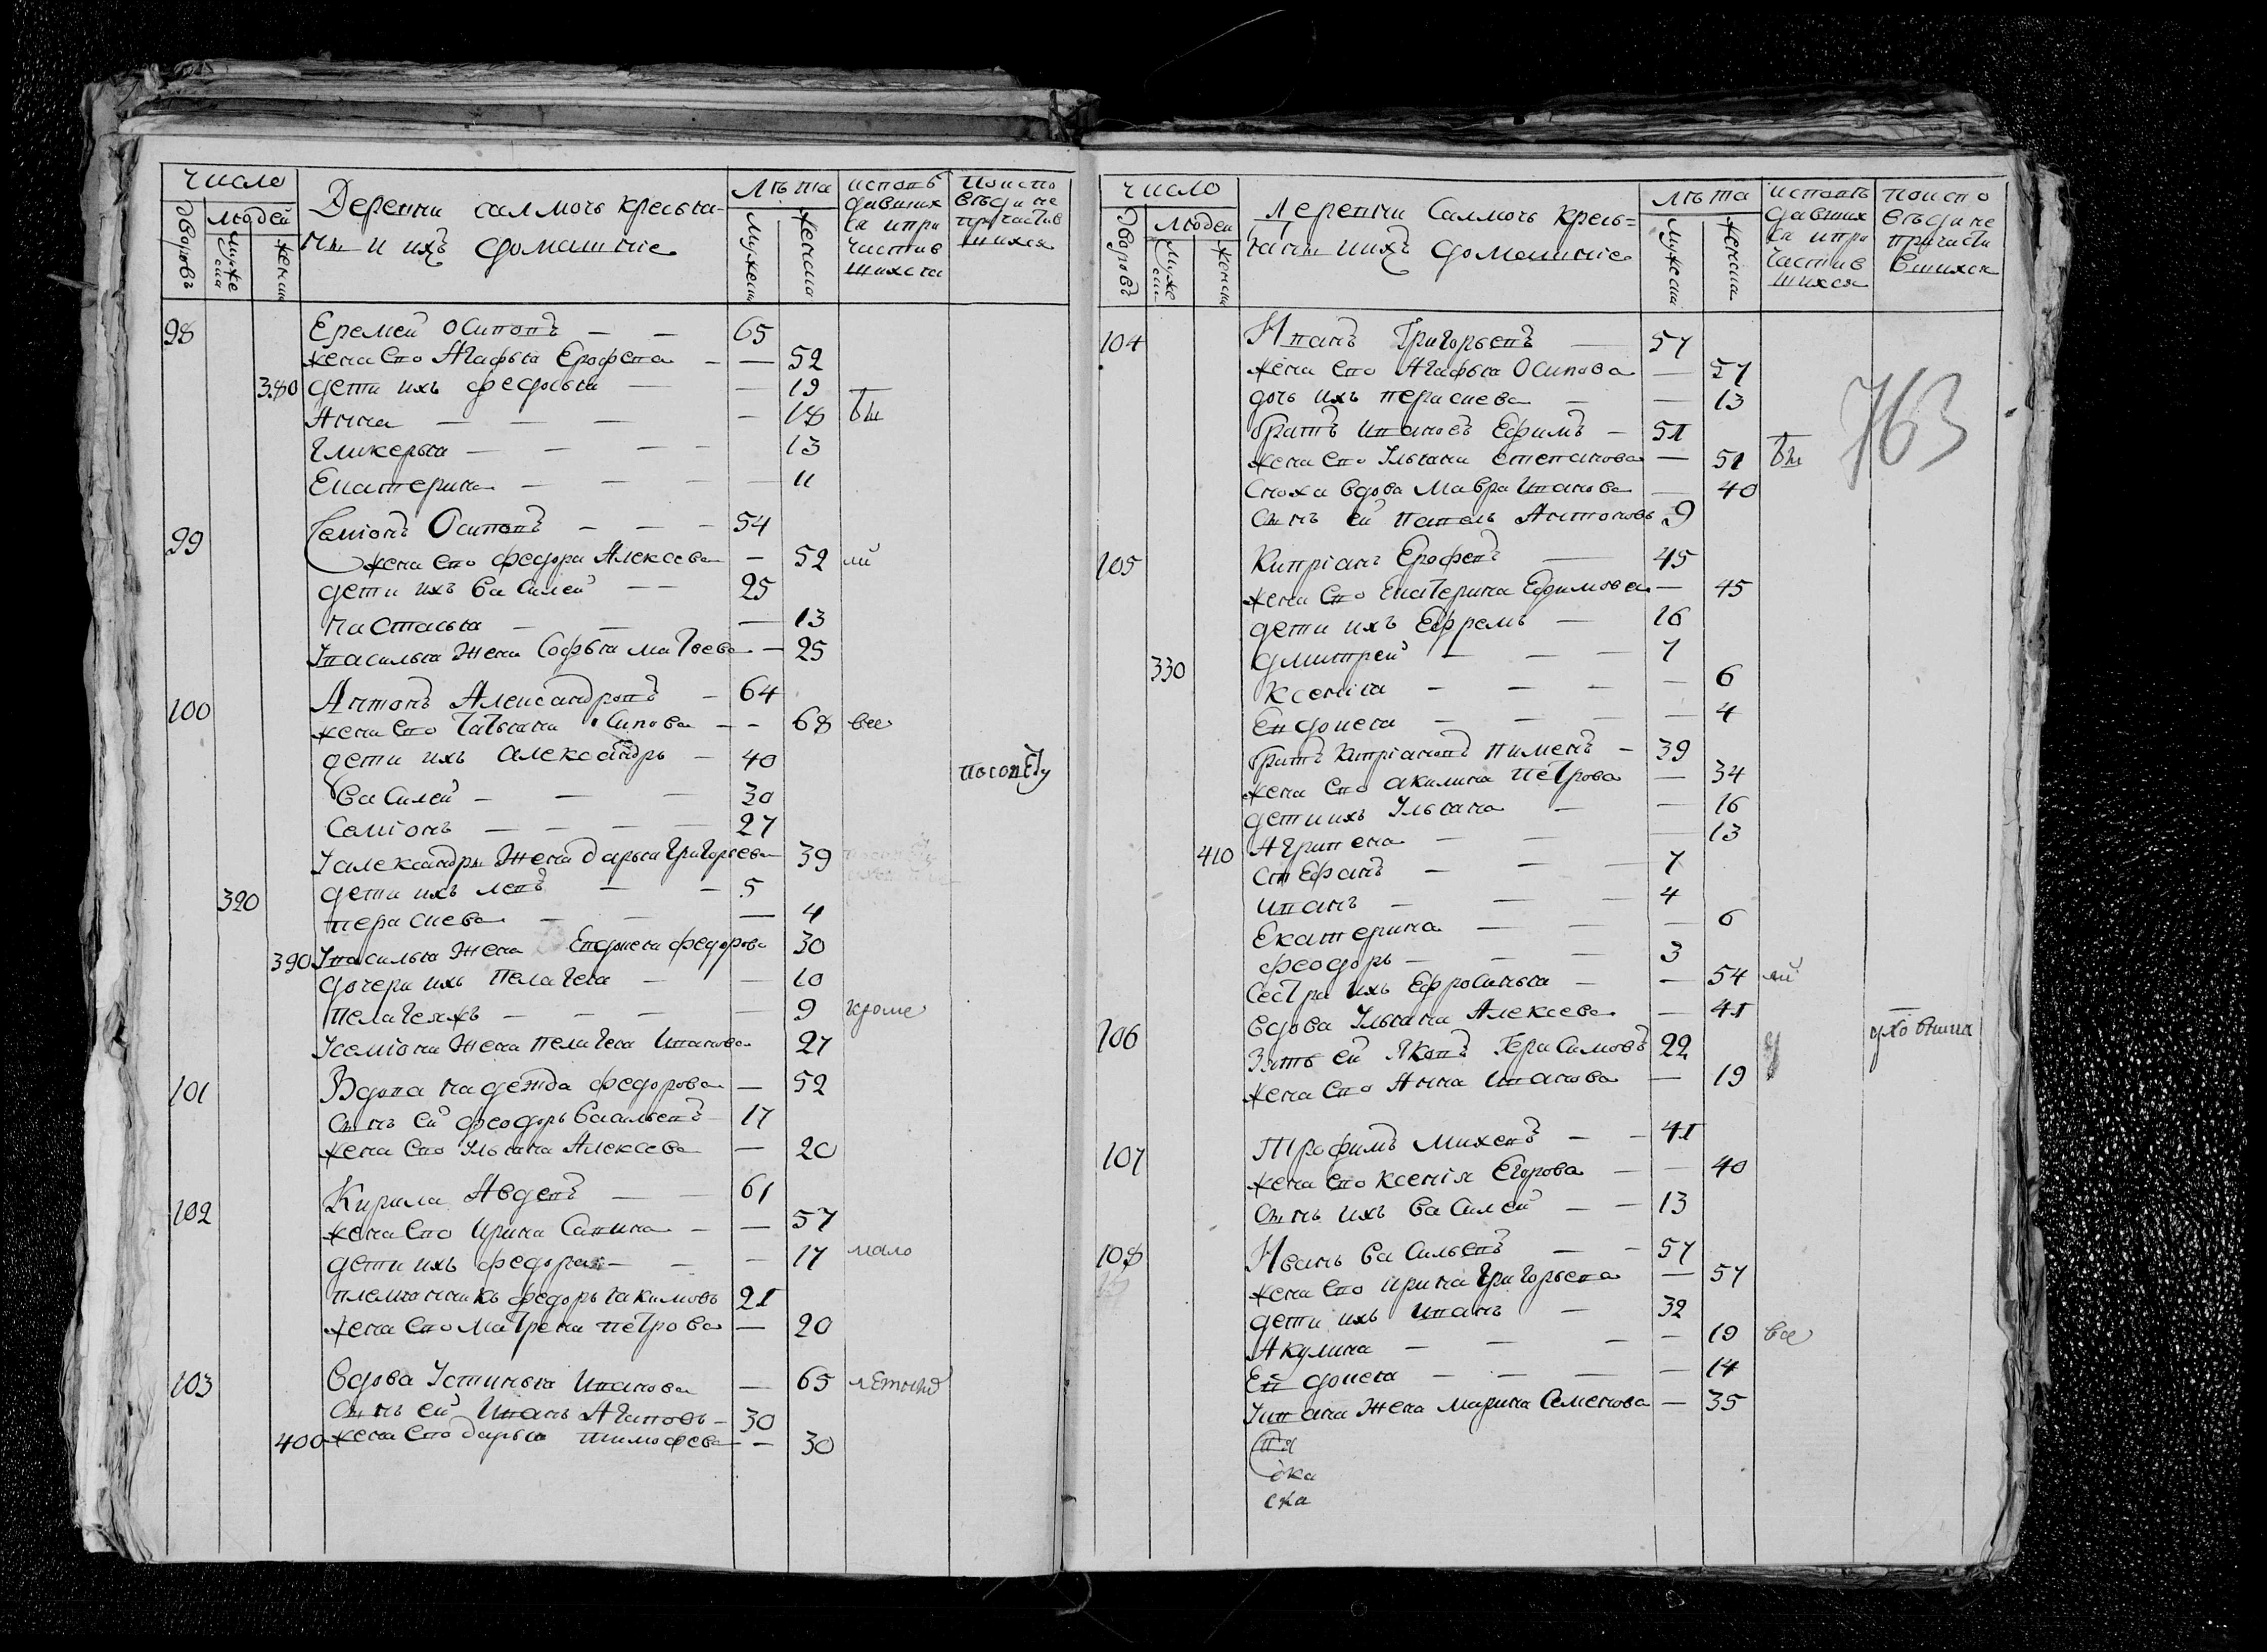 число
дворовъ
людей
мужеска
женска
Деревни салмочь крестья-
ны и ихъ домашние
лѣта
мужеска
женска
исповѣ
давших
ся и при
частив
шихся
По испо
вѣди не
причастив
шихся
98 Еремей Осиповъ — — 65
жена ево Агафья Ерофева — — 52
380 дети ихъ федосья — — 19
Анна — — — — 18 вы
гликерья — — — — 13
Екатерина — — — — 11
99 Семіонъ Осиповъ — — — 54
жена ево федора Алексева — 52 ли
дети ихъ василей — — 25
настасья — — — 13
У василья жена Софья матвева — 25
100 Антонъ Александровъ — 64
жена ево татьяна Осипова — — 68 все
дети ихъ александръ — 40
посовѣту
василей — — — 30
Семіонъ — — — — 27
У александры жена дарья григорьева 39
320 дети ихъ левъ — — 5
перасиева — — — 4
390 У василья жена Евдокея федорова 30
дочери ихъ пелагея — — 10
пелагеяжъ — — — — 9 кроме
У семіона жена пелагея иванова 27
101 Вдова надежда федорова — 52
сынъ ей феодоръ васильевъ 17
жена ево ульяна Алексева — 20
102 Кирила Авдевъ — — 61
жена ево ирина Савина — — 57
дети ихъ федора — — — 17 мало
племянникъ федоръ іакимовъ 21
жена ево матрена петрова — 20
103 вдова Устинья иванова — 65 лѣтны
сынъ ей иванъ Агаповъ — 30
400 жена ево дарья тимофева — — 30
число
дворовъ
людей
мужеска
женска
Деревни Салмочь крестья=
ины ихъ домашние
лѣта
мужеска
женска
исповѣ
давших
ся и при
частив
шихся
поиспо
вѣди не
причасти
вшихся
104 Иванъ Григорьевъ — 57
жена ево Агафья Осипова — 57
дочь ихъ перасиева — — 13
763
братъ ивановъ Ефимъ — 51
жена ево Ульяна степанова — 51 вы
Сноха вдова Мавра иванова — 40
сынъ ей павелъ Антоновъ 9
105 Кипріанъ Ерофевъ — 45
жена ево Екатерина Ефимова — 45
дети ихъ Ефремъ — 16
330 дмитрей — — — 7
Ксенія — — — — 6
Евдокея — — — — 4
братъ Кипріановъ пименъ — 39
жена ево акилина петрова — 34
дети ихъ Ульяна — — 16
410 Агрипена — — — 13
Стефанъ — — — 7
иванъ — — — 4
Екатерина — — — — 6
феодоръ — — — 3
Сестра ихъ Ефросинья — — 54 ли
106 вдова Ульяна Алексева — 41
Зять ей Яковъ Герасимовъ 22
жена ево Анна иванова — 19
107 Трофимъ Михевъ — — 41
жена ево ксенія Егорова — — 40
сынъ ихъ василей — — 13
108 Иванъ васильевъ — — 57
жена ево ирина григорьева — 57
дети ихъ иванъ — 32
Акулина — — — 19 все
Евдокея — — — — 14
У ивана жена марина семенова — 35
ска